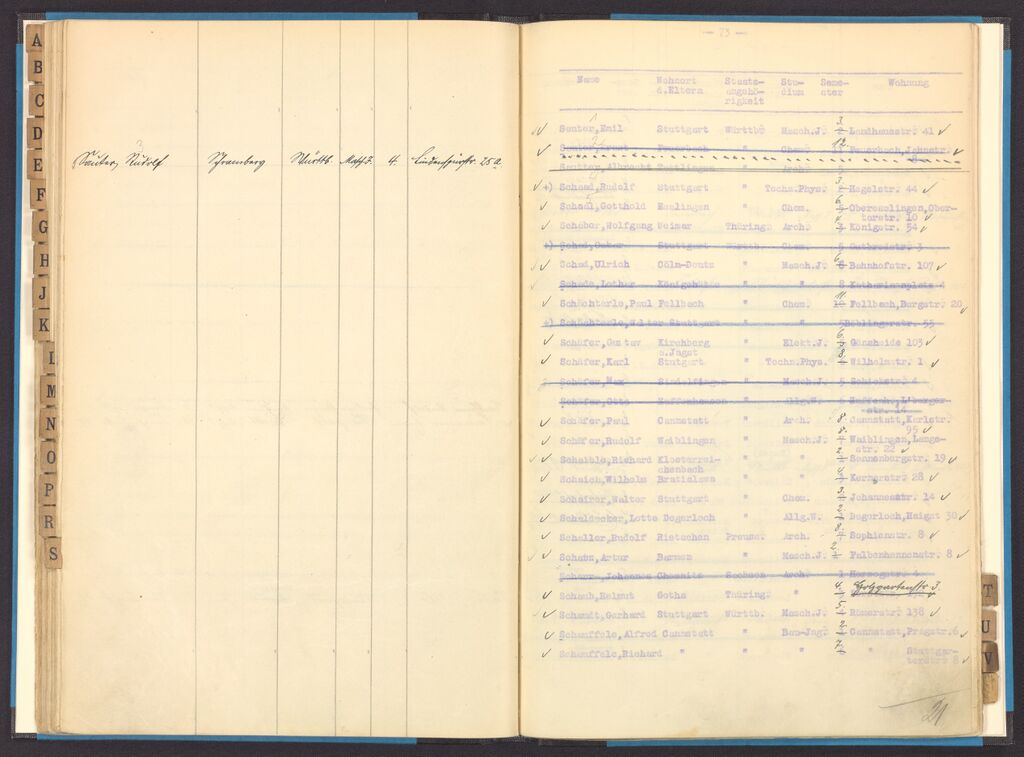 A
B
C
D
E
F
G
H
J
K
L
M
N
O
P
R
S
Sauter, Rudolf Schramberg Württb. Masch.J. 4. Lindenspürstr. 25a
— 73 —
Name Wohnort Staats- Stu- Seme- Wohnung
d.Eltern angehö- dium ster
rigkeit
Sauter,Emil Stuttgart Württb Masch.J. 3. Landhausstr. 41
Feuerbach " Chem. 12. Feuerbach,Jahnstr.
8
Sautter,Albrecht Tuttlingen " Arch.
+) Schaad,Rudolf Stuttgart " Techn.Phys. Hegelstr. 44
Schaal,Gotthold Esslingen " Chem. 6. Oberesslingen,Ober-
torstr. 10
Schaber,Wolfgang Weimar Thüring. Arch. Königstr. 54
+) Schad,Oskar Stuttgart Württb. Chem. 5 3
Schad,Ulrich Cöln-Deutz " Masch.J. 6. Bahnhofstr. 107
Schade,Lothar Königshütte " " 8 Katharinenplatz 4
Schächterle,Paul Fellbach " Chem. 11. Fellbach,Burgstr. 20
+) Schächterle,Walter Stuttgart " " Böblingerstr. 55
Schäfer,Gustav Kirchberg " Elekt.J. 6. Gänsheide 103
a.Jagst
Schäfer,Karl Stuttgart " Techn.Phys. 8. Wilhelmstr. 1
Schäfer,Max Sindelfingen " Masch.J. Schickstr. 4
Schäfer,Otto Zuffenhausen " Allg.W. Zuffenh.,L'burger-
str. 14
Schäfer,Paul Cannstatt " Arch. 8. Cannstatt,Karlstr.
95
Schäfer,Rudolf Waiblingen " Masch.J. 8. Waiblingen,Lange-
str. 22
Schaible,Richard Klosterrei- " " 2. Sonnenbergstr. 19
chenbach
Schaich,Wilhelm Bratislava " " 4. Kernerstr. 28
Schairer,Walter Stuttgart " Chem. 3. Johannesstr. 14
Schaldecker,Lotte Degerloch " Allg.W. 2. Degerloch,Haigst 30
Schaller,Rudolf Rietschen Preuss. Arch. 8. Sophienstr. 8
Schanz,Artur Barmen " Masch.J. 2. Falbenhennenstr. 8
Johannes Chemnitz Sachsen Arch. 1 Herzogstr. 4
Schaub,Helmut Gotha Thüring. " 4. Holzgartenstr. 3.
Schaudt,Gerhard Stuttgart Württb. Masch.J. 5. Römerstr. 138
Schauffele,Alfred Cannstatt " Bau-Jng. 2. Cannstatt,Pragstr.6
Schauffele,Richard " " " 7. " Stuttgar-
terstr. 8
21
T
U
V